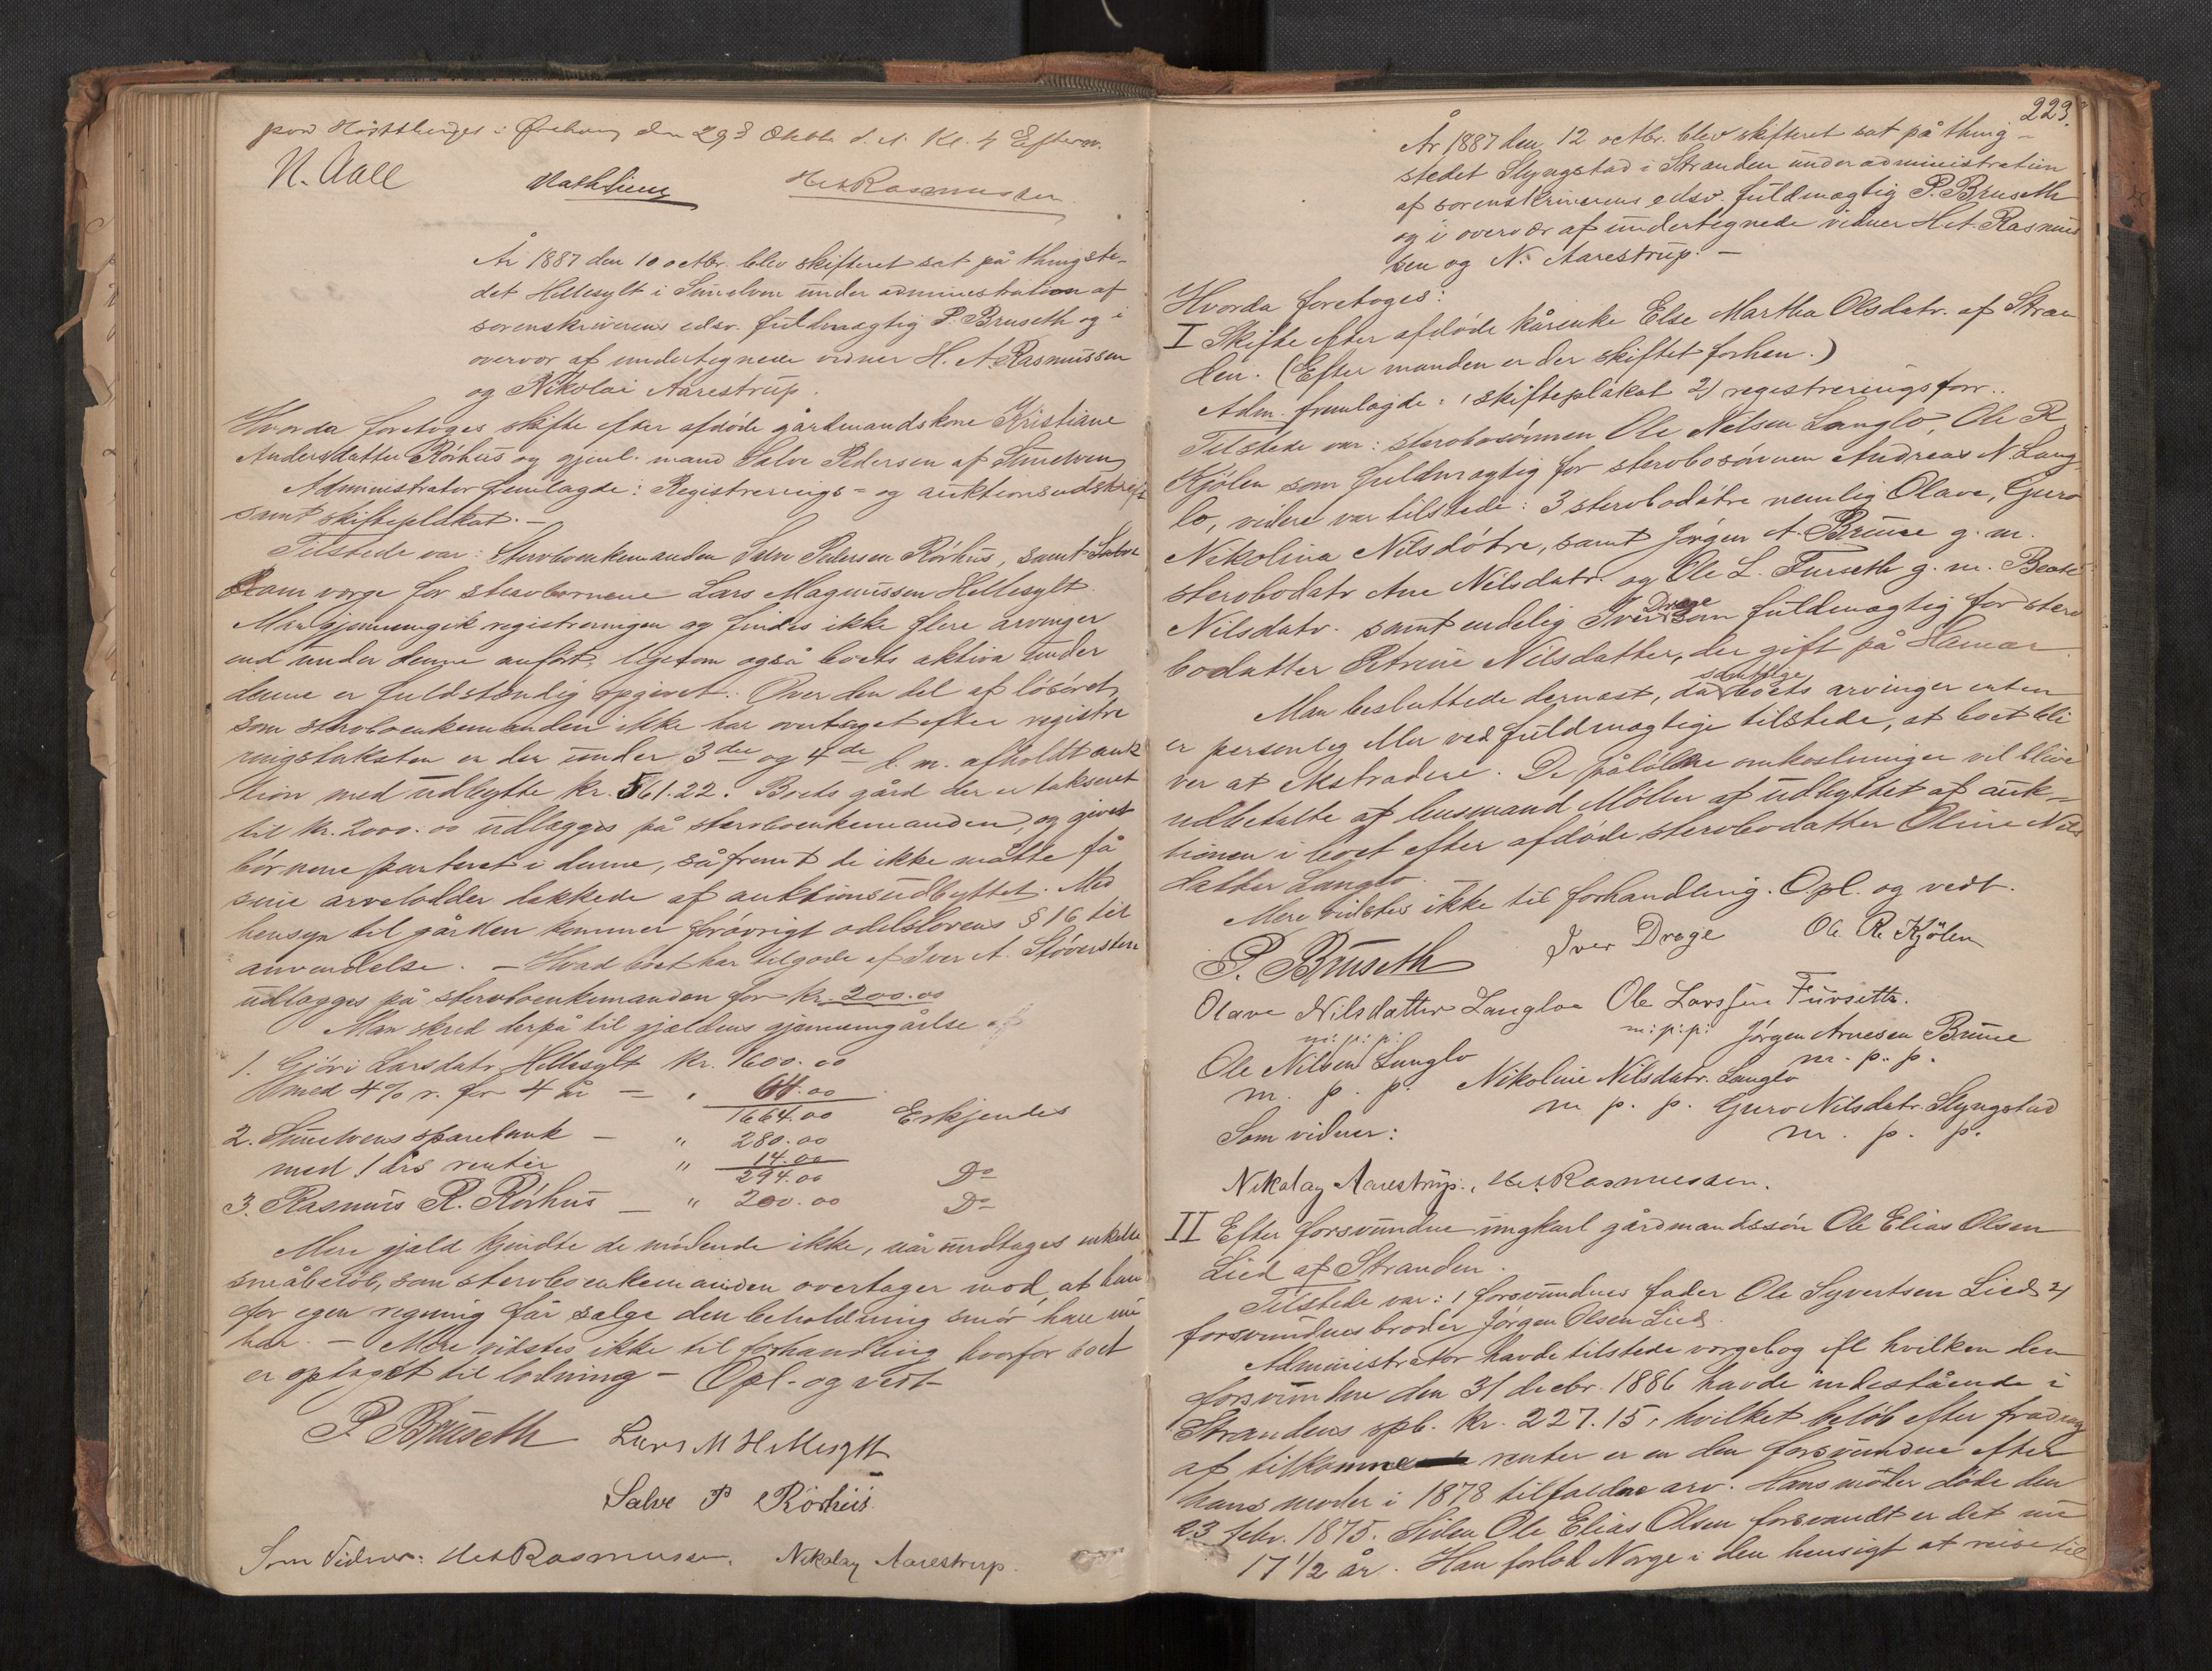 den 29d Oktb. d. A. Kl. 4 Efterm.
N. Aall HetRasmussen
År 1887 den 10 octbr. blev skifteret sat på thingste-
det Hellesylt i Sunelven under administration af
sorenskriverens edsv. fuldmægtig P. Bruseth og i
overvær af undertegnede vidner H. A. Rasmussen
og Nikolai Aarestrup.
Hvorda foretoges skifte efter afdøde gårdmandskone Kristiane
Andersdatter Rörhus og gjenl. mand Salve Pedersen af Sunelven
Administrator fremlagde: Registrerings- og auktionsudskrift
samt skifteplakat. -
Tilstede var: Stervboenkemanden Salve Pedersen Rörhus, samt
som værge for stervbørnene Lars Magnussen Hellesylt.
Man gjennemgik registreringen og findes ikke flere arvinger
end under denne anført, ligesom også boets aktiva under
denne er fuldstændig opgivet. Over den del af lösöret,
som stervboenkemanden ikke har overtaget efter registre
ringstaksten er der under 3die og 4de d. m. afholdt auk
tion med udbytte kr. 561.22. Boets gård der er takseret
til kr. 2000.00 udlægges på stervboenkemanden, og gives
börnene panteret i denne, såfremt de ikke måtte få
sine arvelodder dækkede af auktionsudbyttet. Med
hensyn til gården kommer forövrigt odelslovens § 16 til
anvendelse. - Hvad boet har tilgode af Iver A. Stöversten
udlægges på stervboenkemanden for kr. 200.00
Man skred derpå til gjældens gjennemgåelse
1. Gjöri Larsdatr. Hellesylt kr. 1600.00
med 4% r. for 4 år - " 64.00
1664.00 Erkjendes
2. Sunelvens sparebank - " 280.00
med 1 års renter " 14.00
294.00 Do
3. Rasmus R. Rörhus - " 200.00 Do
Mere gjæld kjendte de mödende ikke, når undtages enkelte
småbelöb, som stervboenkemanden overtager mod, at han
for egen regning får sælge den beholdning smör han nu
har. - Mere vidstes ikke til forhandling hvorfor boet
er optaget til lodning - Opl. og vedt.
P. Bruseth Lars M Hellesylt
Salve P Rörhus.
Som Vidner: HetRasmussen. Nikolay Aarestrup.
223.
År 1887 den 12 octbr. blev skifteret sat på thing-
stedet Slyngstad i Stranden under administration
af sorenskriverens edsv. fuldmægtig P. Bruseth
og i overvær af undertegnede vidner Het. Rasmus
sen og N. Aarestrup. -
Hvorda foretoges:
I Skifte efter afdöde kårenke Else Martha Olsdatr. af Stran
den. (Efter manden er der skiftet forhen.)
Adm. fremlagde: 1 skifteplakat 2) registreringsforr..
Tilstede var: stervbosönnen Ole Nilsen Langlo, Ole R
Kjölen som fuldmægtig for stervbosönnen Andreas N. Lang
lo, videre var tilstede: 3 stervbodötre nemlig Olave, Guro
Nikolina Nilsdötre, samt Jörgen A. Brune g. m.
stervbodatr Ane Nilsdatr. og Ole L. Furseth g. m. Beate
Nilsdatr. samt endelig Iver Drage som fuldmægtig for sterv
bodatter Petrine Nilsdatter, der gift på Hamar.
Man besluttede dernæst, da samtlige boets arvinger enten
er personlig eller ved fuldmægtige tilstede, at boet bli
ver at ekstradere. De påløbne omkostninger vil blive
udbetalte af lensmand Möller af udbyttet af auk-
tionen i boet efter afdöde stervbodatter Oline Nils
datter Langlo.
Mere vidstes ikke til forhandling. Opl. og vedt.
P. Bruseth Iver Drage Ole R. Kjölen
Olave Nilsdatter Langloe Ole Larssen Furseth.
m: p: p: m: p: p: Jörgen Arnesen Brune
Ole Nilsen Langlo m. p. p.
m. p. p. Nikoline Nilsdatr. Langlo
m p. p. Guro Nilsdatr. Slyngstad
Som vidner: m. p. p.
Nikolay Aarestrup., HetRasmussen.
II Efter forsvundne ungkarl gårdmandssön Ole Elias Olsen
Lied af Stranden.
Tilstede var: 1 forsvundnes fader Ole Syvertsen Lied 2)
forsvundnes broder Jörgen Olsen Lied.
Administrator havde tilstede værgebog ifl hvilken den
forsvundne den 31 decbr. 1886 havde indestående i
Strandens spb. kr. 227.15, hvilket belöb efter fradrag
af tilkomne renter er en den forsvundne efter
hans moder i 1878 tilfalden arv. Hans moder döde den
23 febr. 1875. Siden Ole Elias Olsen forsvandt er det nu
17 1/2 år. Han forlod Norge i den hensigt at reise til